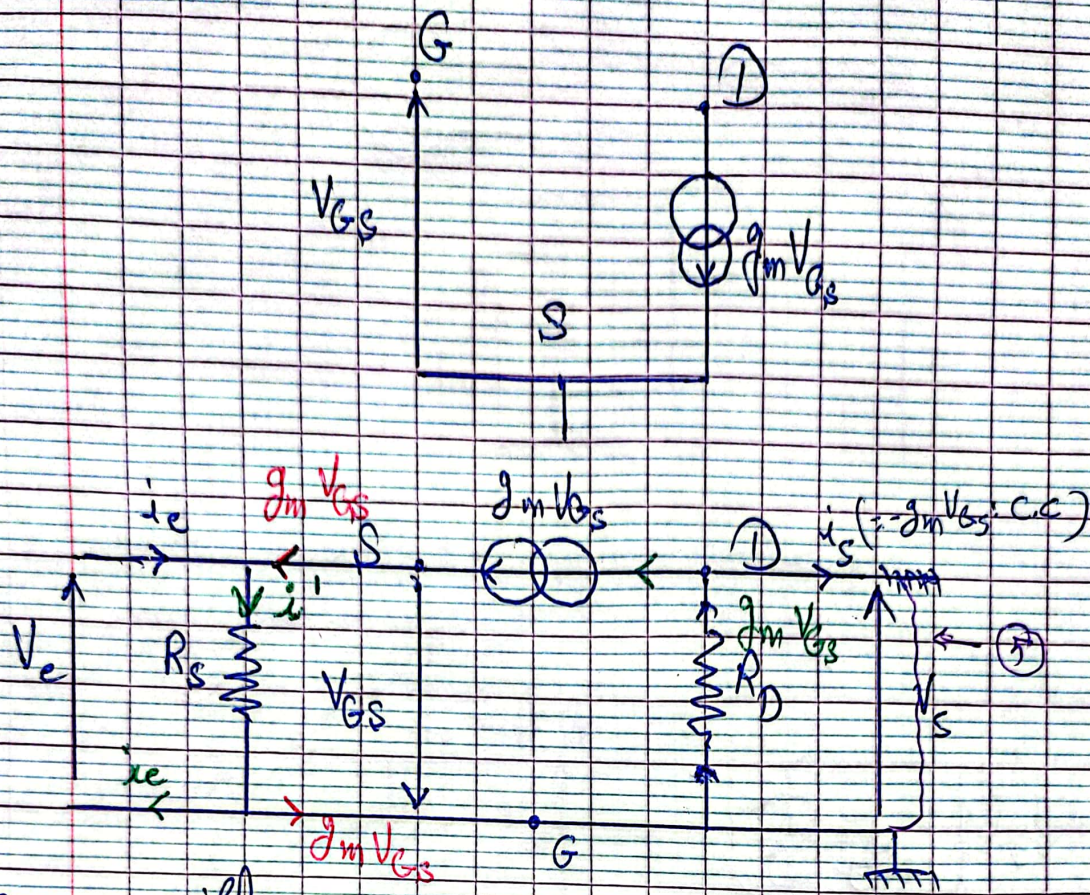 G
D
V_GS
g_m V_GS
S
i_e
g_m V_GS
S
g_m V_GS
D
i_s (= -g_m V_GS : C.C)
V_e
R_s
i'
V_GS
g_m V_GS
R_D
V_s
i_e
g_m V_GS
G